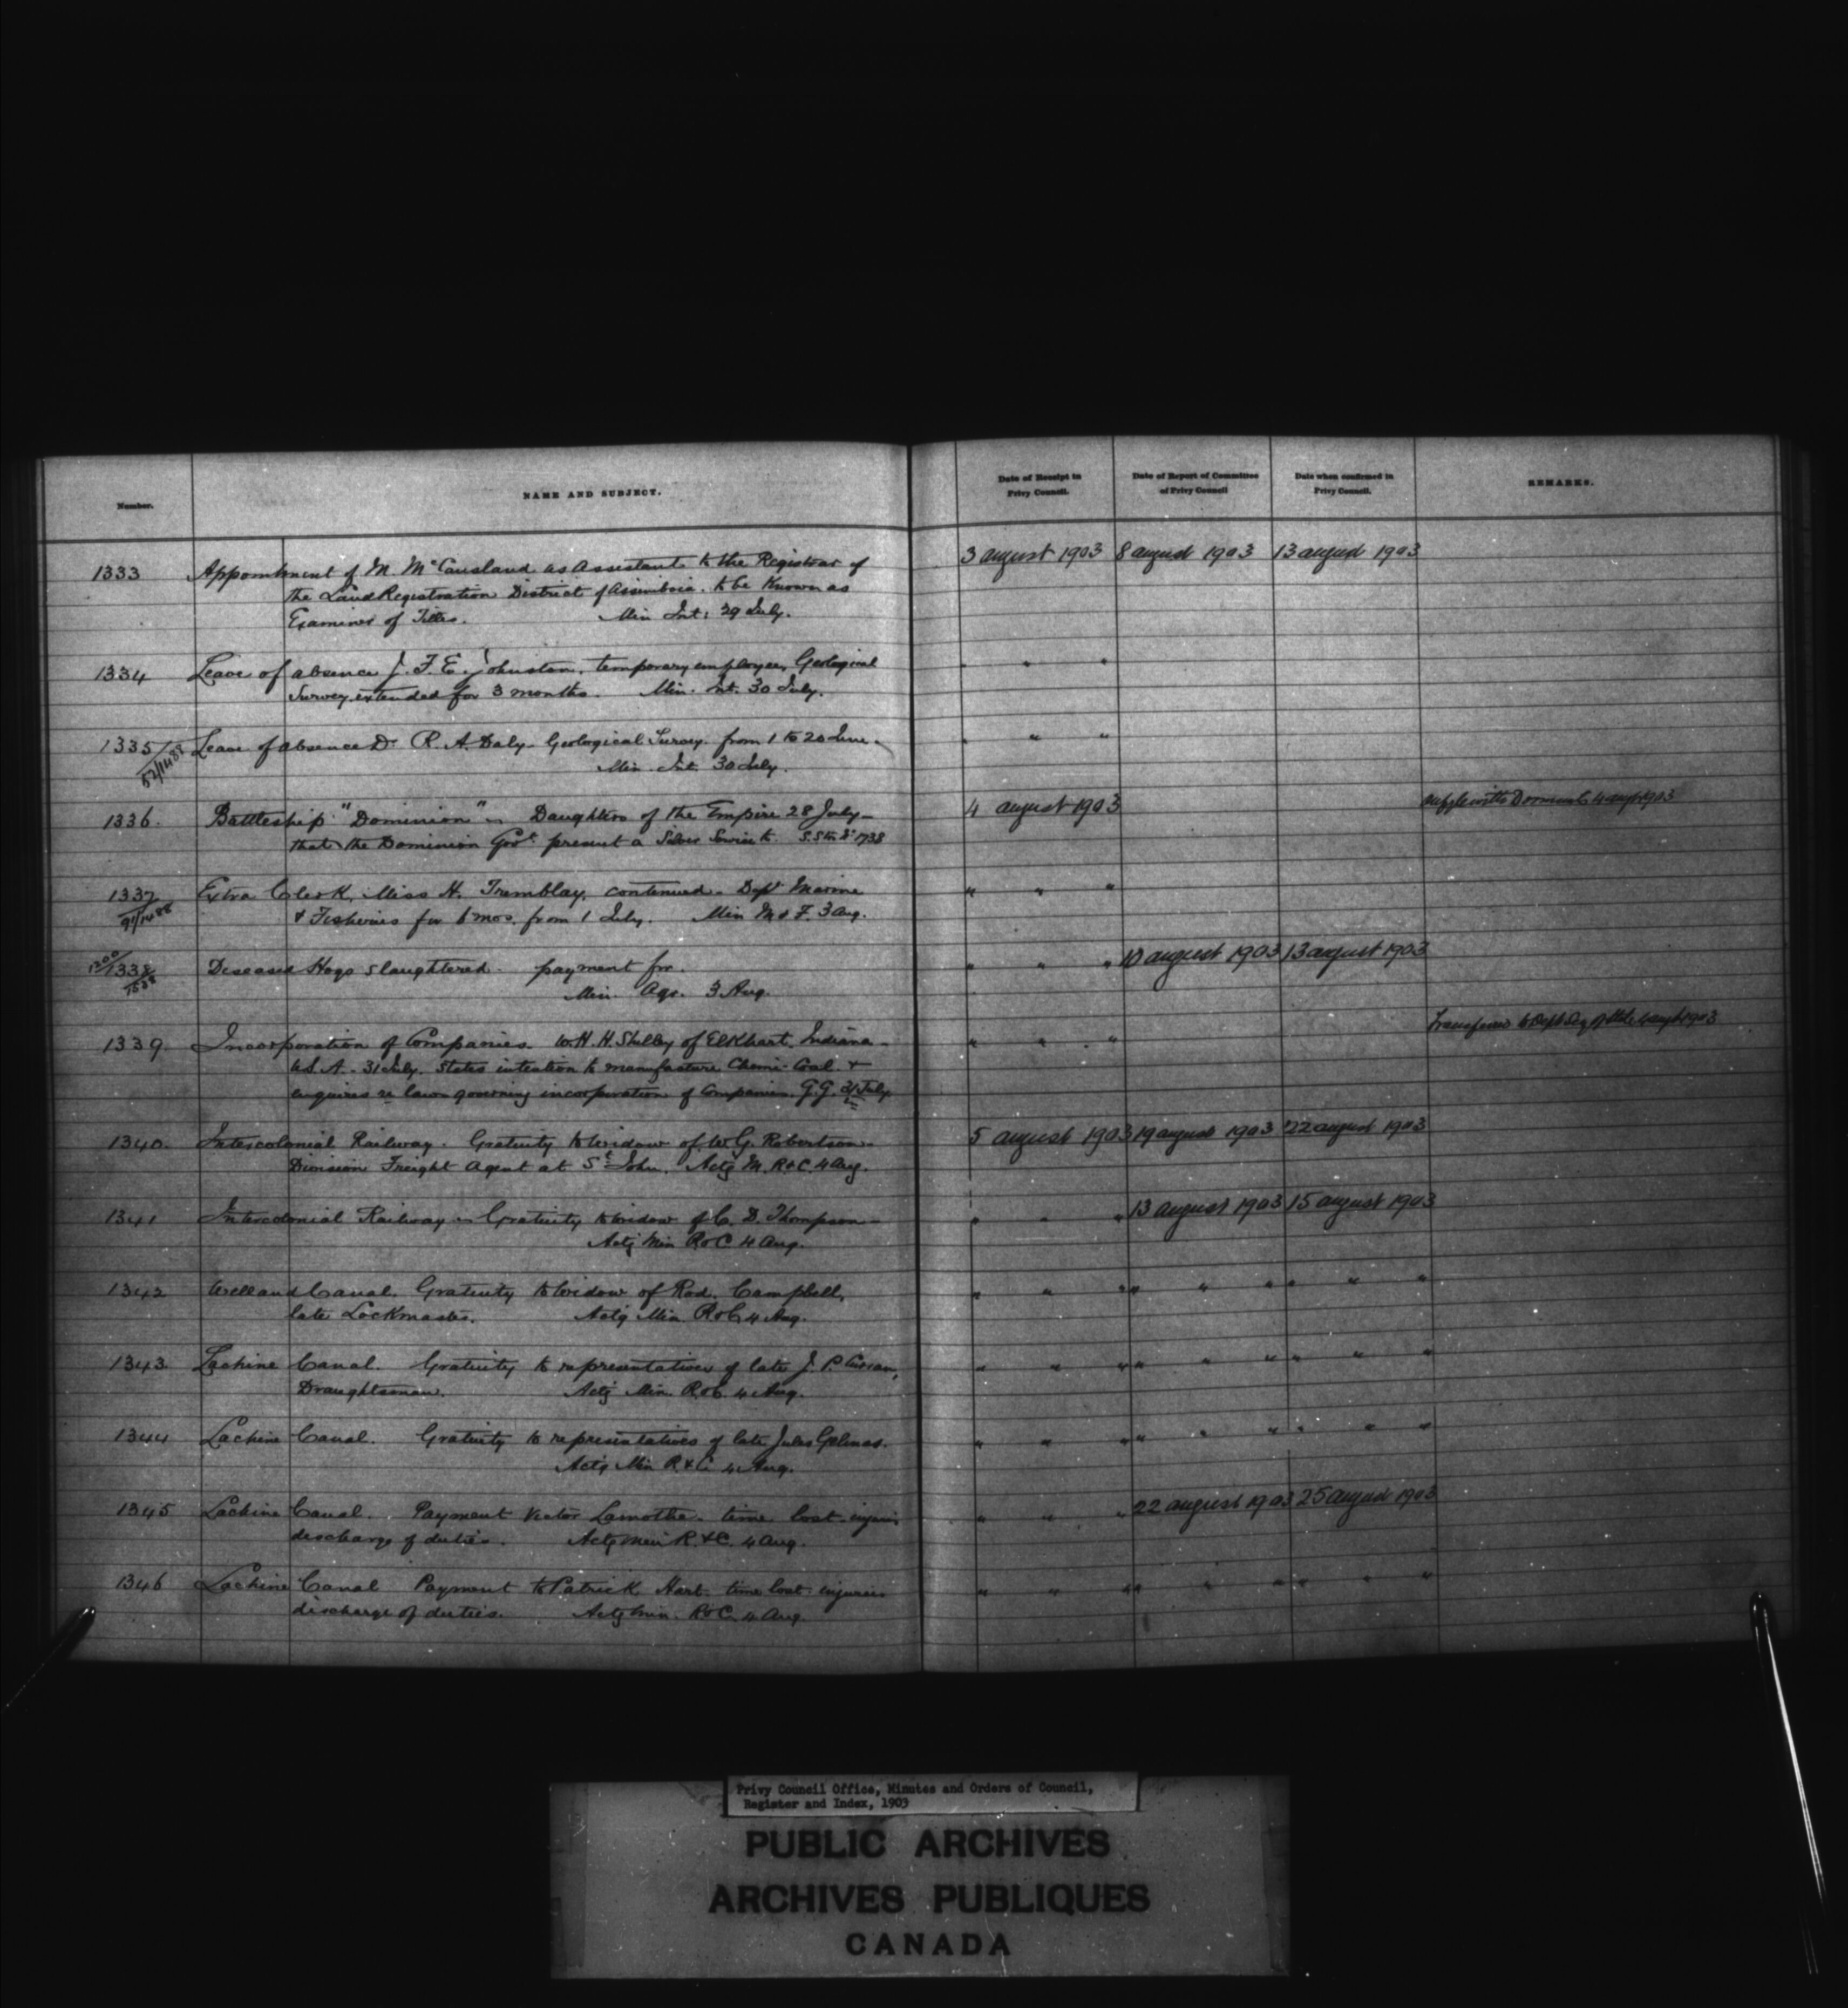 Number.
NAME AND SUBJECT.
Date of Receipt in
Privy Council.
Date of Report of Committee
of Privy Council
Date when confirmed in
Privy Council.
REMARKS.
1333 Appointment of M. McCausland as Assistant to the Registrar of 3 august 1903 8 august 1903 13 august 1903
the Land Registration District of Assiniboia. to be Known as
Examiner of Titles. Min Int: 29 July.
1334 Leave of absence J. F. E. Johnston, temporary employee, Geological " " "
Survey extended for 3 months. Min. Int. 30 July.
1335 Leave of absence Dr R. A. Daly - Geological Survey from 1 to 20 June - " " "
52/1488
Min. Int. 30 July.
1336. Battleship "Dominion" - Daughters of the Empire 28 July - 4 august 1903
that the Dominion Govt. present a Silver Service to. 1738
1337 Extra Clerk, Miss H. Tremblay, continued - Dept Marine " " "
91/1488
& Fisheries for 6 mos. from 1 July. Min M & F. 3 Aug.
1338 Diseased Hogs slaughtered - payment for. " " " 10 august 1903 13 august 1903
Min. Agr. 3 Aug.
1339. Incorporation of Companies. W. H. H. Shelley of Elkhart, Indiana - " " "
U.S.A. - 31 July. States intention to manufacture Chemi-Coal &
enquires re laws governing incorporation of Companies. G.G. 31 July.
1340. Intercolonial Railway - Gratuity to widow of W. G. Robertson - 5 august 1903 19 august 1903 22 august 1903
Division Freight Agent at St. John. Actg M. R & C. 4 Aug.
1341 Intercolonial Railway - Gratuity to widow of C. D. Thompson - " " " 13 august 1903 15 august 1903
Actg Min R & C 4 Aug.
1342 Welland Canal. Gratuity to widow of Rod. Campbell, " " " " " " " " "
late Lockmaster. Actg Min. R & C 4 Aug.
1343. Lachine Canal. Gratuity to representatives of late J. P. Curran, " " " " " " " " "
Draughtsman. Actg Min. R & C. 4 Aug.
1344 Lachine Canal. Gratuity to representatives of late Jules Gelinas. " " " " " " " " "
Actg Min R & C 4 Aug.
1345 Lachine Canal. Payment Victor Lamothe - time lost - " " " 22 august 1903 25 august 1903
discharge of duties. Actg Min R. & C. 4 Aug.
1346 Lachine Canal Payment to Patrick Hart time lost - injuries " " " " " " " " "
discharge of duties. Actg Min. R & C. 4 Aug.
Privy Council Office, Minutes and Orders of Council,
Register and Index, 1903
PUBLIC ARCHIVES
ARCHIVES PUBLIQUES
CANADA